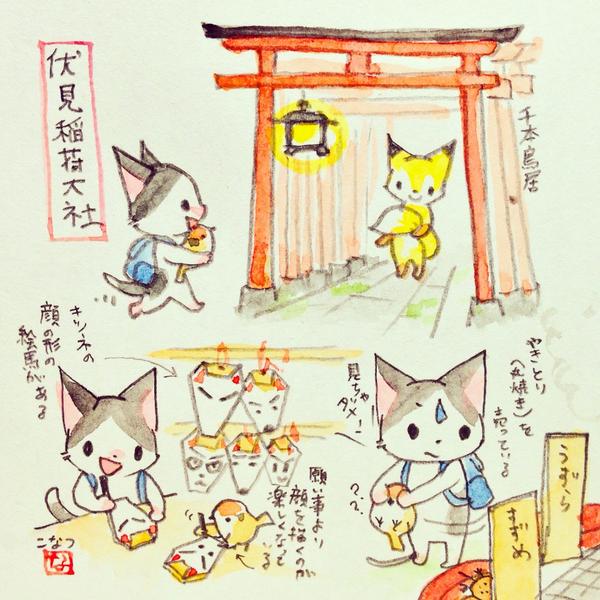 伏見稲荷大社
千本鳥居
キツネの
顔の形の
絵馬がある
願い事より
顔を描くのが
楽しくなって
いる
こなつ
な
見ちゃ
ダメ!
やきとり
(丸焼き)を
売っている
??
うずら
すずめ